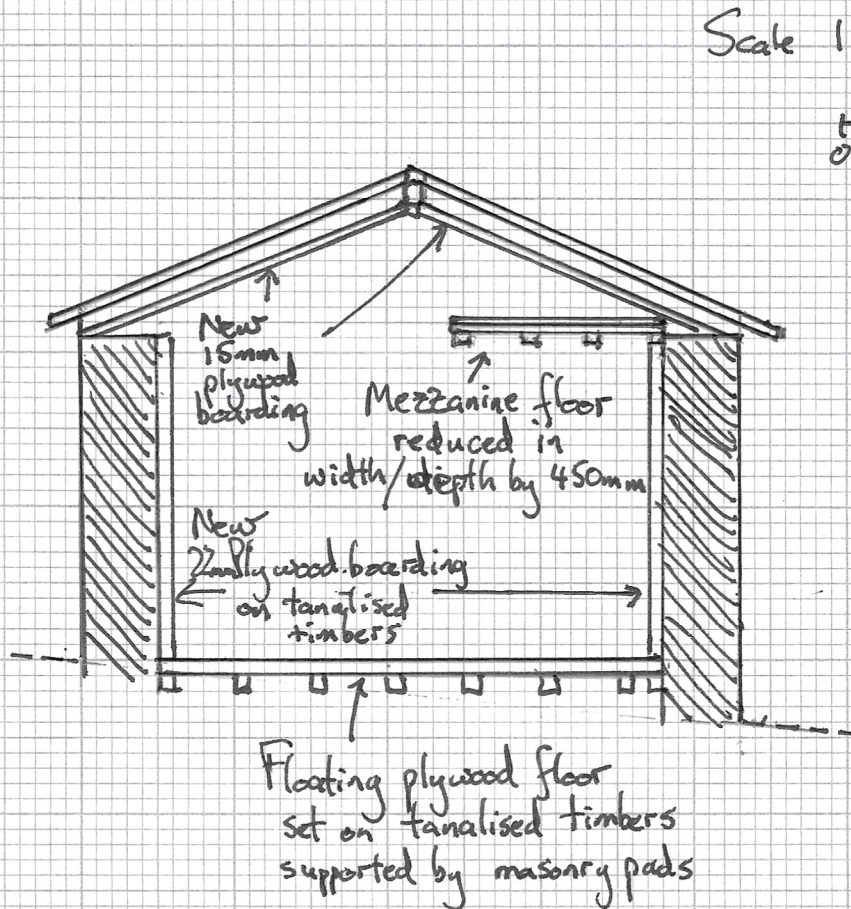 Scale 1
New
15mm
plywood
boarding
Mezzanine floor
reduced in
width/depth by 450mm
New
22mm Plywood boarding
on tanalised
timbers
Floating plywood floor
set on tanalised timbers
supported by masonry pads